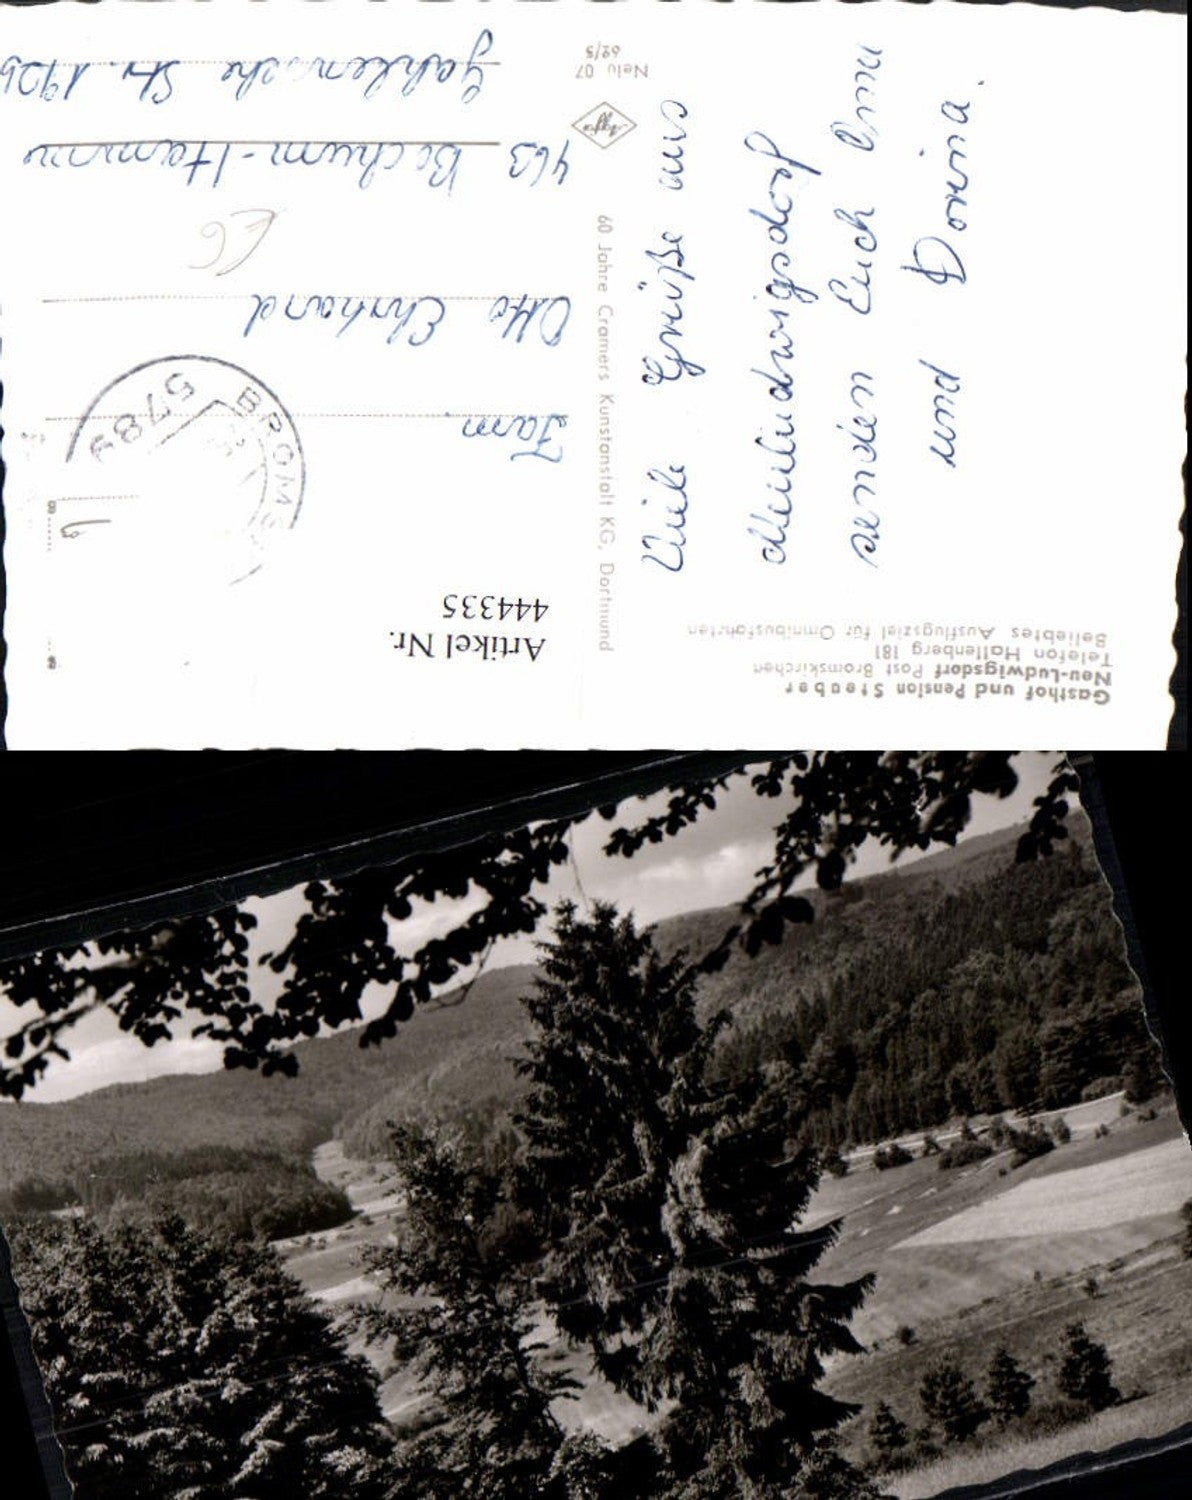 Gasthof und Pension Steuber
Neu-Ludwigsdorf Post Bromskirchen
Telefon Hallenberg 181
Beliebtes Ausflugsziel für Omnibusfahrten
Viele Grüße aus
Neuludwigsdorf
senden Euch
und Dorina.
60 Jahre Cramers Kunstanstalt KG, Dortmund
Agfa
Nelu 07
62/5
Artikel Nr.
444335
5789 BROMS
Fam.
Otto Ehrhard
EG
463 Bochum-Hamme
Gahlensche Str. 192b